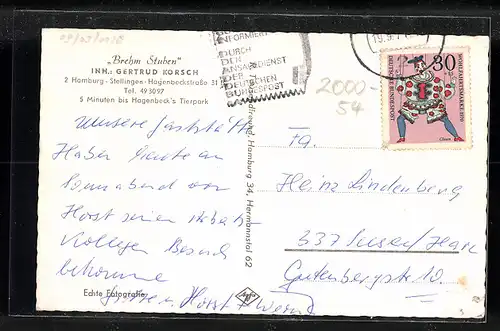 "Brehm Stuben"
INH.: GERTRUD KORSCH
2 Hamburg-Stellingen-Hagenbeckstraße 31
Tel. 493097
5 Minuten bis Hagenbeck's Tierpark
INFORMIERT
DURCH
DEN
ANSAGEDIENST
DER
DEUTSCHEN
BUNDESPOST
2000-
54
30
DEUTSCHE BUNDESPOST
WOHLFAHRTSMARKE 1970
Clown
Unsere Gaststätte
Haben heute am
Sonnabend von
Horst seinen
Kollegen Besuch
bekommen
Horst + Werner
Echte Fotografie
Hamburg 34, Hermannstal 62
Fa.
Heinz Lindenberg
337 Seesen/Harz
Gutenbergstr. 10